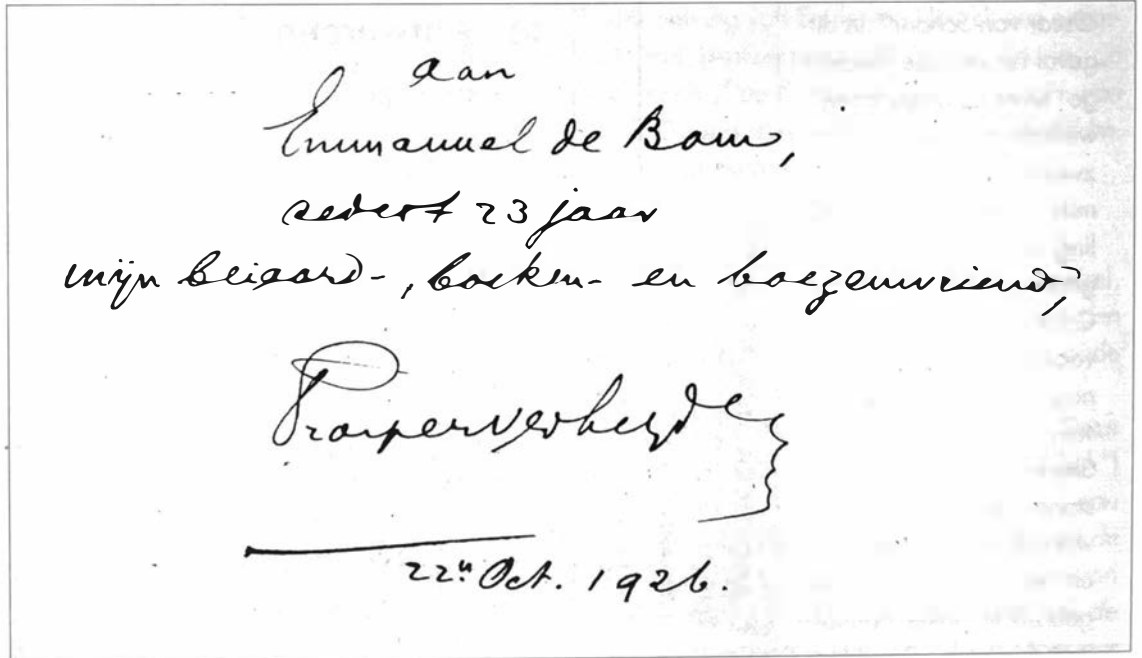 aan
Emmanuel de Bom,
sedert 23 jaar
mijn beiaard-, boeken- en boezemvriend,
Prosper Verheyden
22n Oct. 1926.